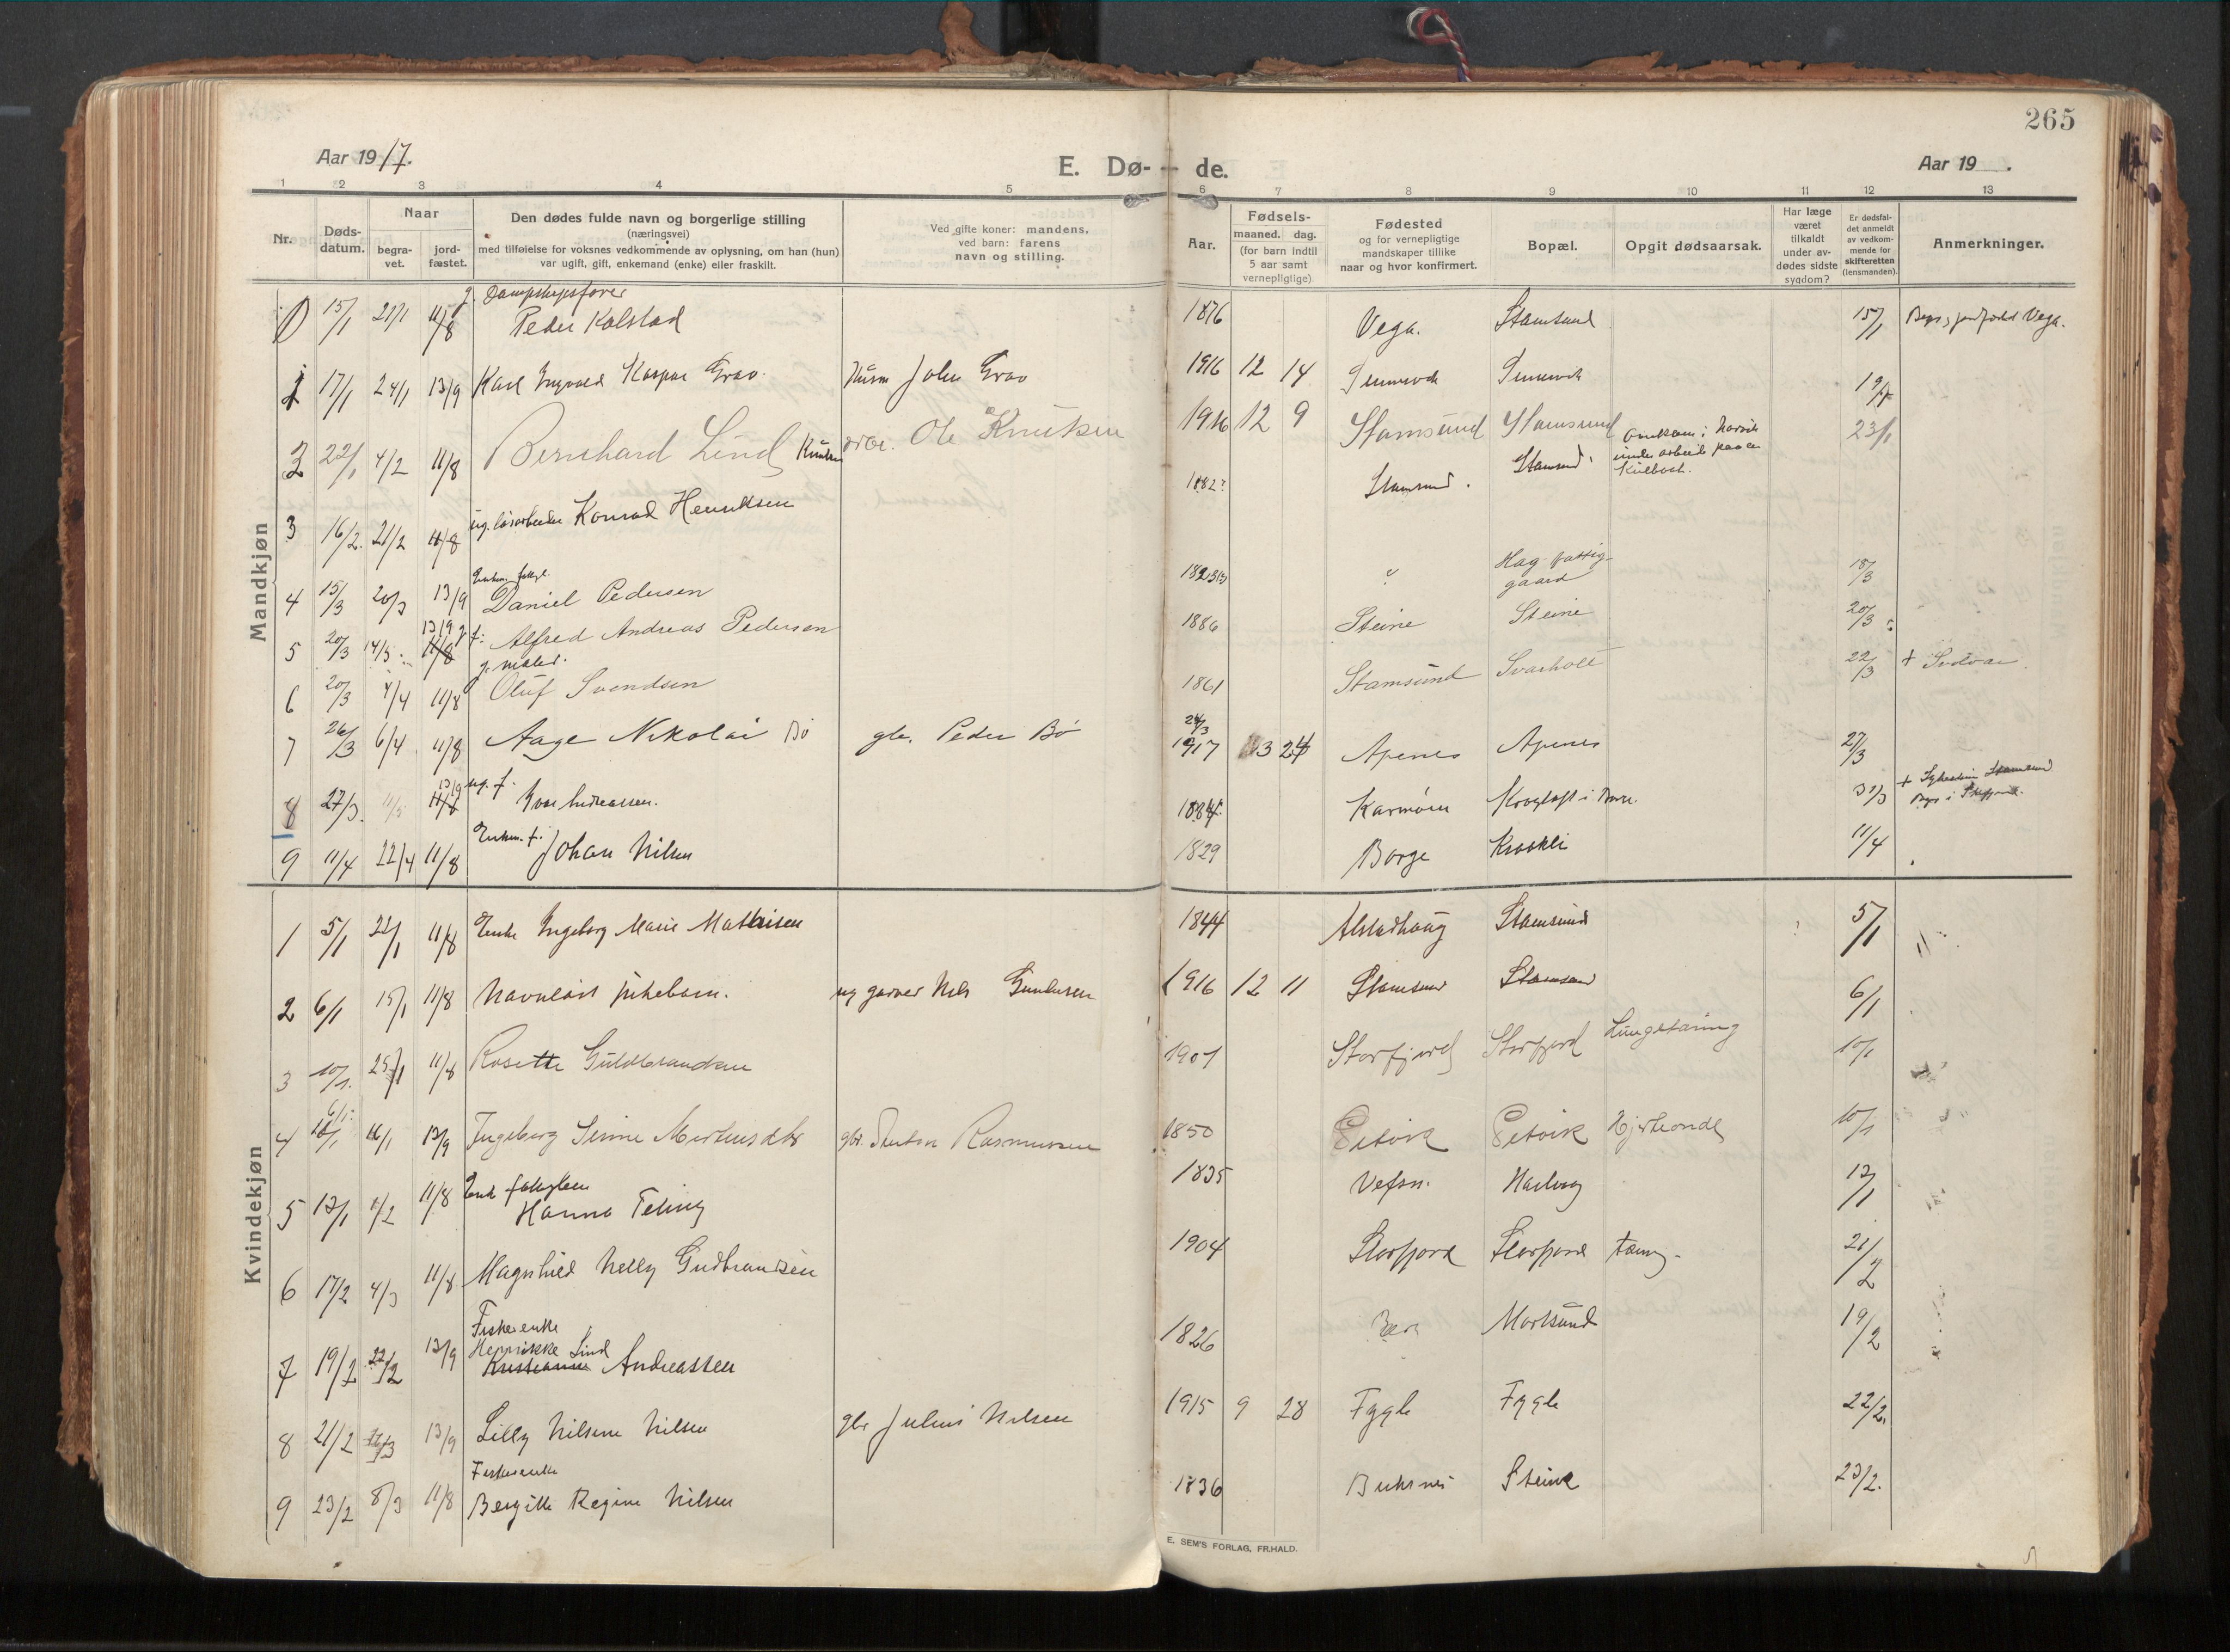 265
Aar 1917.
E. Dø- de.
Aar 19 .
1 2 3 4 5 6 7 8 9 10 11 12 13
Nr.
Døds-
datum.
Naar
begra-
vet.
jord-
fæstet.
Den dødes fulde navn og borgerlige stilling
(næringsvei)
med tilføielse for voksnes vedkommende av oplysning, om han (hun)
var ugift, gift, enkemand (enke) eller fraskilt.
Ved gifte koner: mandens,
ved barn: farens
navn og stilling.
Aar.
Fødsels-
maaned. dag.
(for barn indtil
5 aar samt
vernepligtige)
Fødested
og for vernepligtige
mandskaper tillike
naar og hvor konfirmert.
Bopæl.
Opgit dødsaarsak.
Har læge
været
tilkaldt
under av-
dødes sidste
sygdom?
Er dødsfal-
det anmeldt
av vedkom-
mende for
skifteretten
(lensmanden).
Anmerkninger.
Mandkjøn
g. Dampskipsfører
15/1 21/1 11/8 Peder Kalstad 1876 Vega. Stamsund 15/1 Vega.
1 17/1 24/1 13/9 Karl Ingvald Kaspar Grav. Husm John Grav 1916 12 14
2 22/1 4/2 11/8 Bernhard Lind Knutsen Ole Knutsen 1916 12 9 Stamsund Stamsund 23/1
Omkom i Narvik
under arbeide paa en
Kulbaat.
3 16/2. 21/2 11/8 ug. løsarbeider Konrad Henriksen 1882? Stamsund. Stamsund.
4 15/3 20/3 13/9 Daniel Pedersen 1823 ? Hag fattig-
gaard 18/3
5 20/3 14/5 13/9 11/8 g. f: Alfred Andreas Pedersen 1886 Steine Steine 20/3
g. maler.
6 20/3 4/4 11/8 Oluf Svendsen 1861 Stamsund Svarholt 22/3 + Svolvær
7 26/3 6/4 11/8 Aage Nikolai Bø gbr. Peder Bø 24/3 1917 3 24 Apenes Apenes 27/3
8 27/3. 11/5 13/9 ug. f. Ivar Andreassen. 1884 Karmøen 31/3 + Stamsund
9 11/4 22/4 11/8 Enkem. f. Johan Nilsen 1829 Borge Kraakli 11/4
Kvindekjøn
1 5/1 22/1 11/8 Enke Ingeborg Marie Mathisen 1844 Alstadhaug Stamsund 5/1
2 6/1 15/1 11/8 Navnløst pikebarn. ug garver Nils 1916 12 11 Stamsund Stamsund 6/1
3 10/1. 25/1 11/8 Rosette Guldbrandsen 1907 Storfjord Storfjord Lungetæring 10/1
4 6/1: 10/1 16/1 13/9 Ingeborg Martinsdtr gbr. Rasmussen 1850 Petvik Petvik Hjerteonde 10/1
5 12/1 1/2 11/8 Hanna 1835 Vefsn. 12/1
6 17/2 4/3 11/8 Magnhild Nelly Gudbrandsen 1904 Storfjord Storfjord tæring 21/2
Fiskerenke
7 19/2 22/2 13/9 Henrikke Lind
Kristianne Andreassen 1826 Mortsund 19/2
8 21/2 13/9 Lilly Nilsine Nilsen gbr Julius Nilsen 1915 9 28 Fygle Fygle 22/2.
Fiskerenke
9 23/2 8/3 11/8 Bergitte Regine Nilsen 1836 Buksnes Steine 23/2.
E. SEM'S FORLAG, FR.HALD.